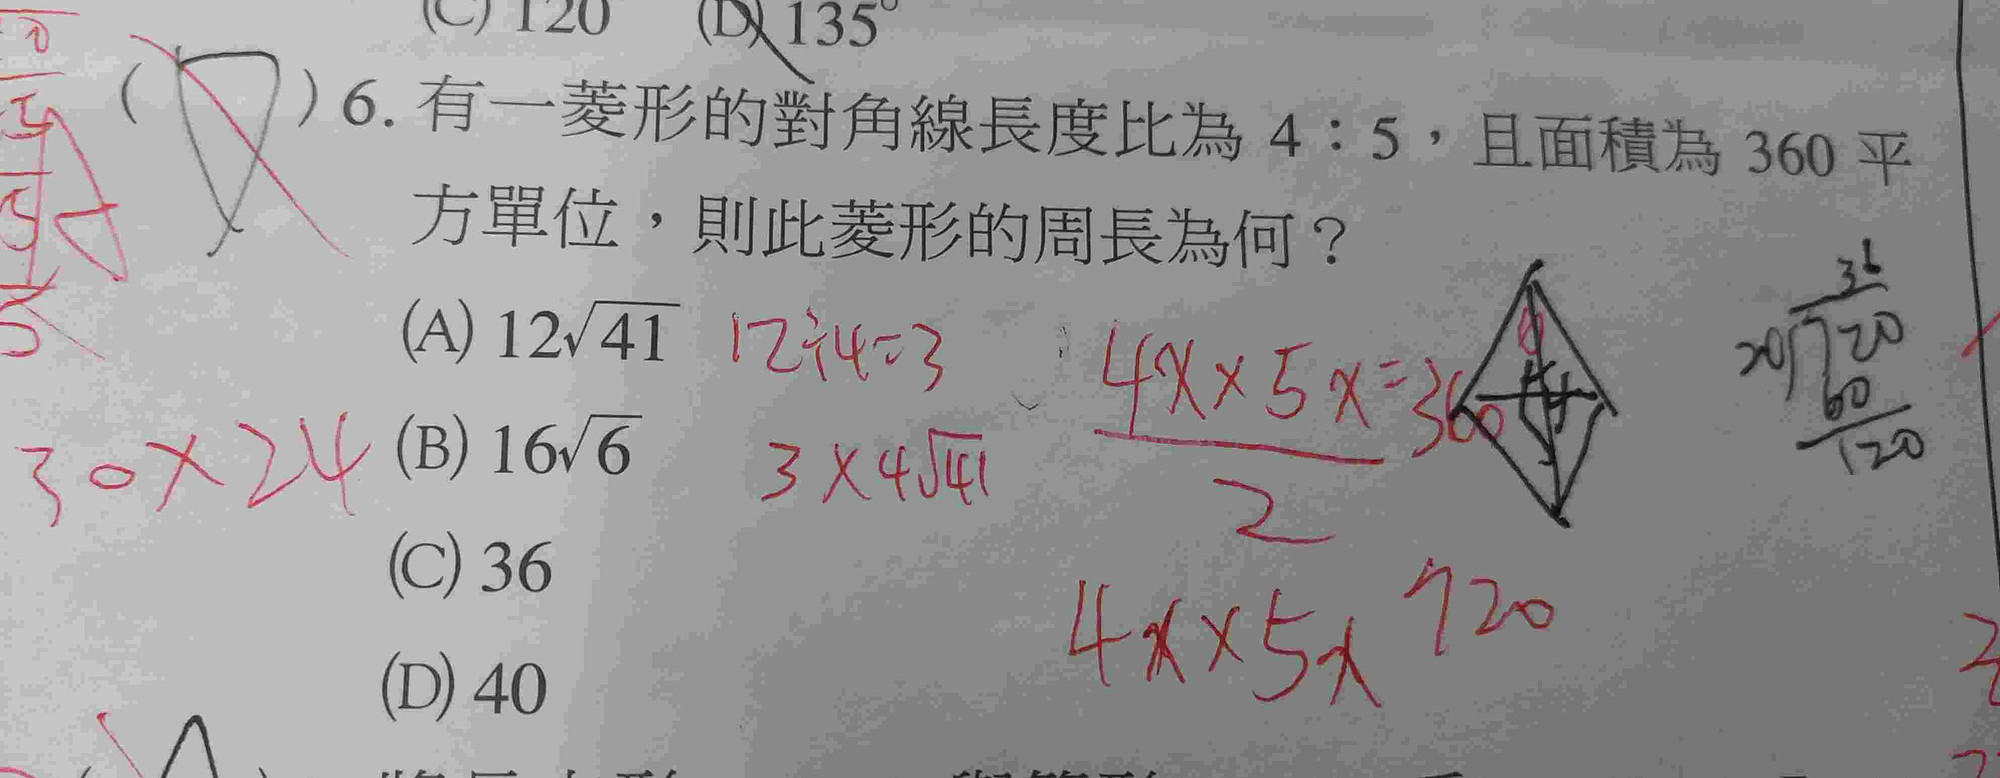 (C) 120 (D) 135°
( ) 6. 有一菱形的對角線長度比為 4：5，且面積為 360 平
方單位，則此菱形的周長為何？
(A) 12√41
12÷4=3
4x×5x=360
2
36
20√720
60
120
30×24
(B) 16√6
3×4√41
(C) 36
4x×5x 720
(D) 40